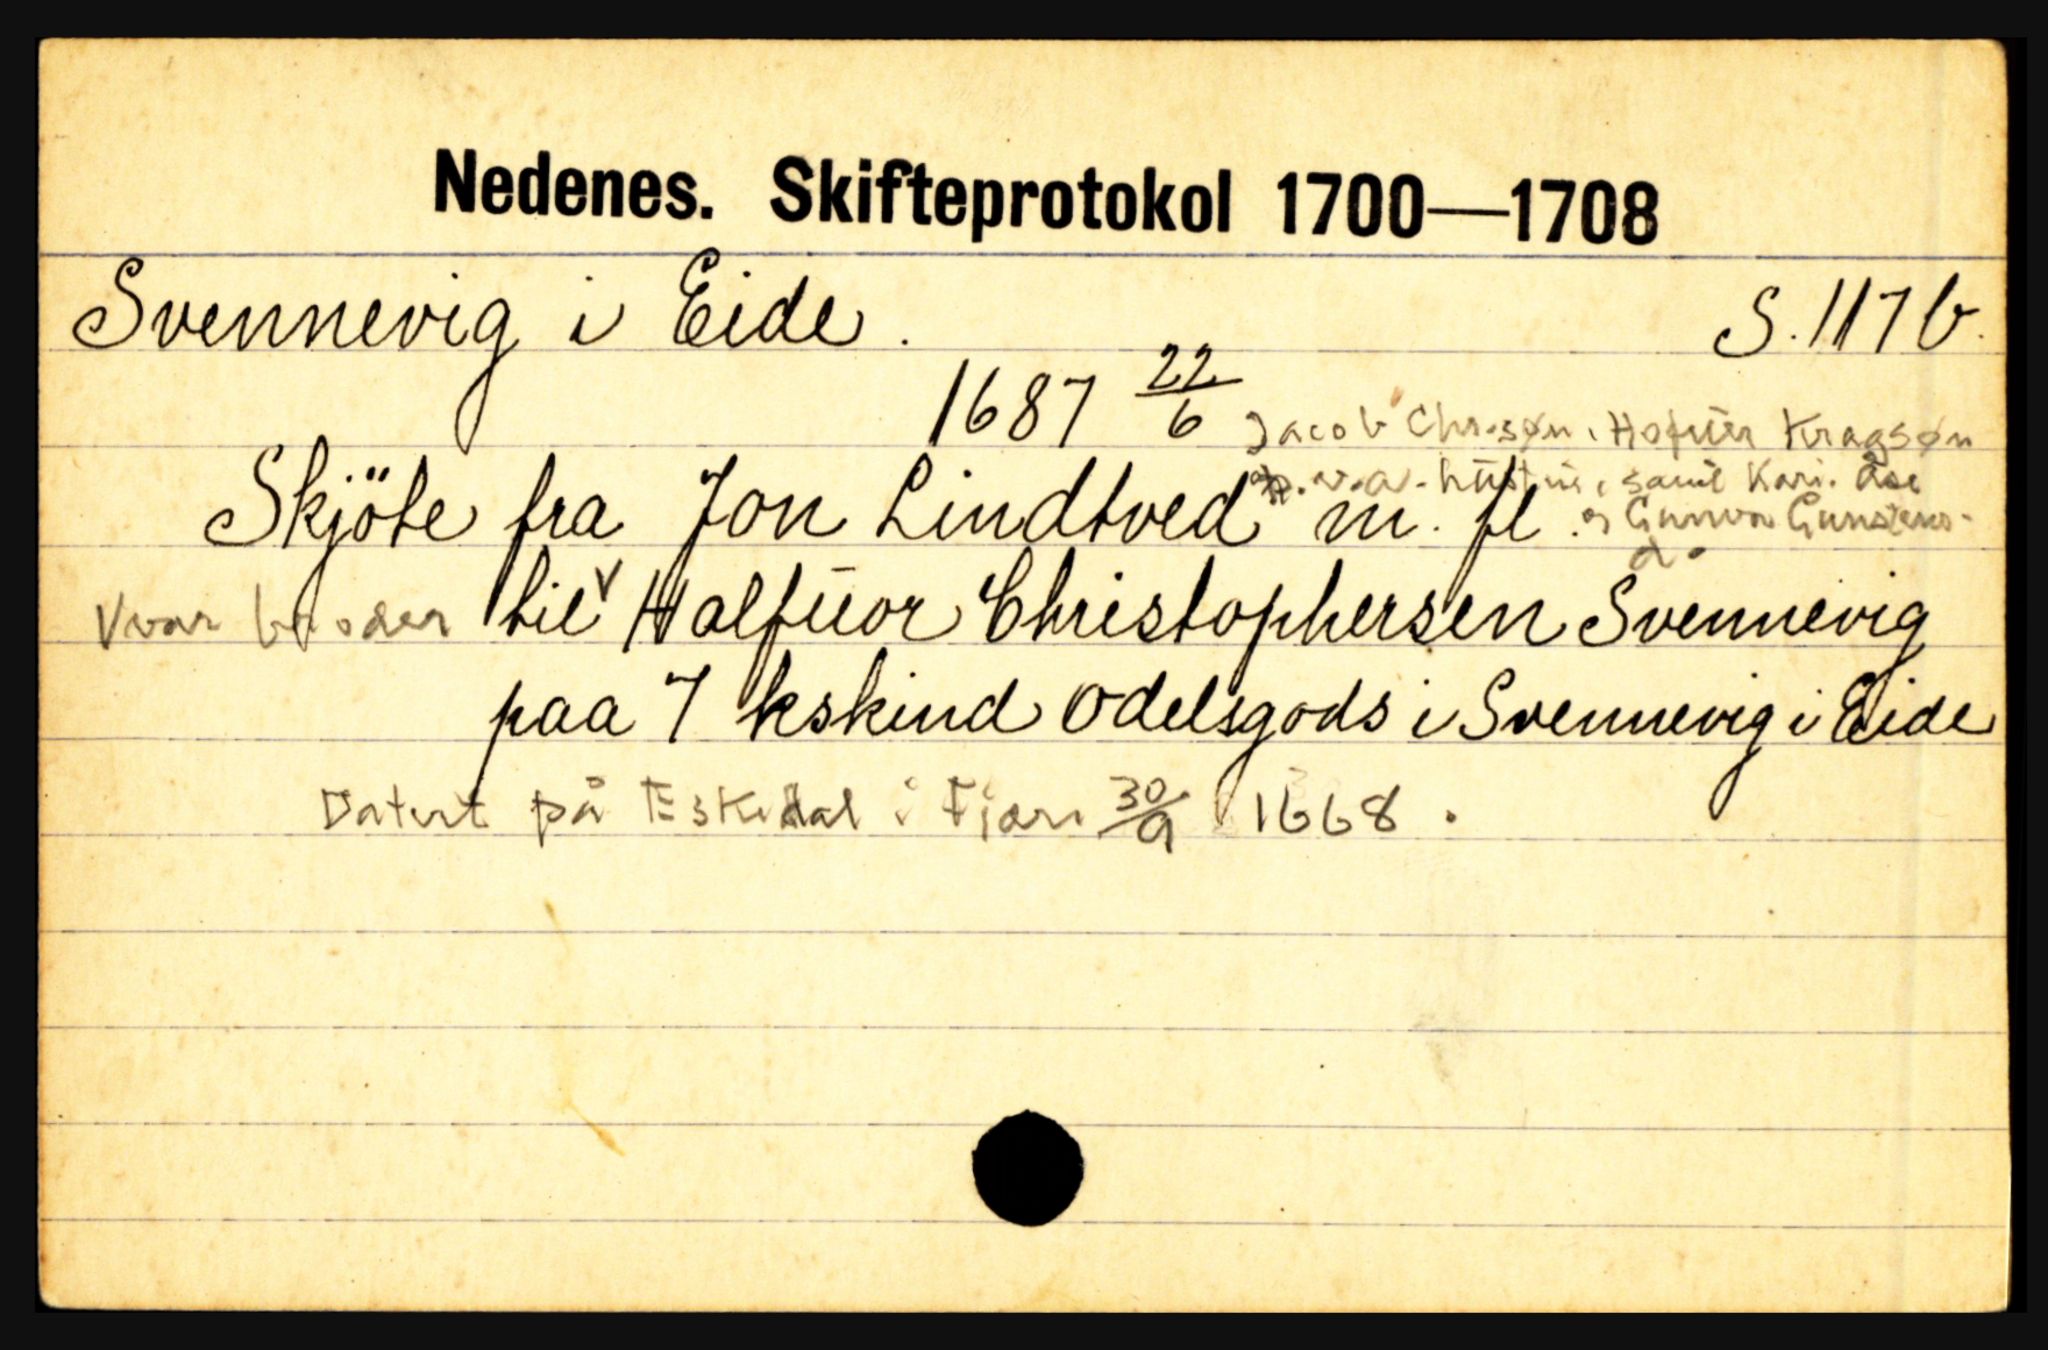 Nedenes. Skifteprotokol 1700—1708
Svennevig i Eide. S. 117 b.
1687 22/6 Jacob Chr.søn, Hofuer Kragsøn
p. v. a. hustru, samt Kari. Åse
Skjöte fra Jon Lindtved m. fl. og Gunvor Gunstens-
d.
V vor broder til V Halfuor Christophersen Svennevig
paa 7 kskind Odelsgods i Svennevig i Eide
Datert på Eskedal i Fjære 30/9 1668.